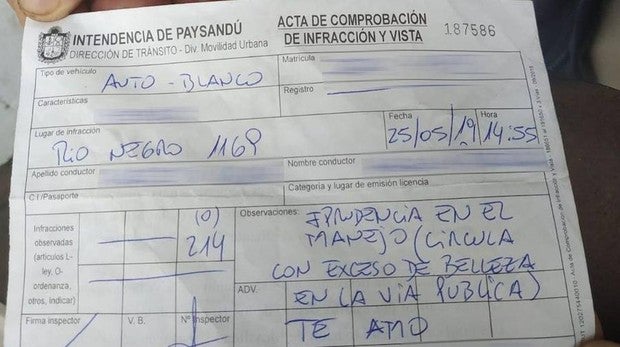 INTENDENCIA DE PAYSANDÚ
DIRECCIÓN DE TRÁNSITO - Div. Movilidad Urbana
ACTA DE COMPROBACIÓN
DE INFRACCIÓN Y VISTA
187586
Tipo de vehículo
AUTO - BLANCO
Matrícula
Características
Registro
Lugar de infracción
RIO NEGRO 1169
Fecha
25/05/19
Hora
14:55
Apellido conductor
Nombre conductor
C.I/Pasaporte
Categoría y lugar de emisión licencia
Infracciones
observadas
(artículos L-
ley, O-
ordenanza,
otros, indicar)
(0)
214
Observaciones:
IPRUDENCIA EN EL
MANEJO (CIRCULA
CON EXCESO DE BELLEZA
ADV.
EN LA VIA PUBLICA)
TE AMO
Firma inspector
V. B.
Nº Inspector